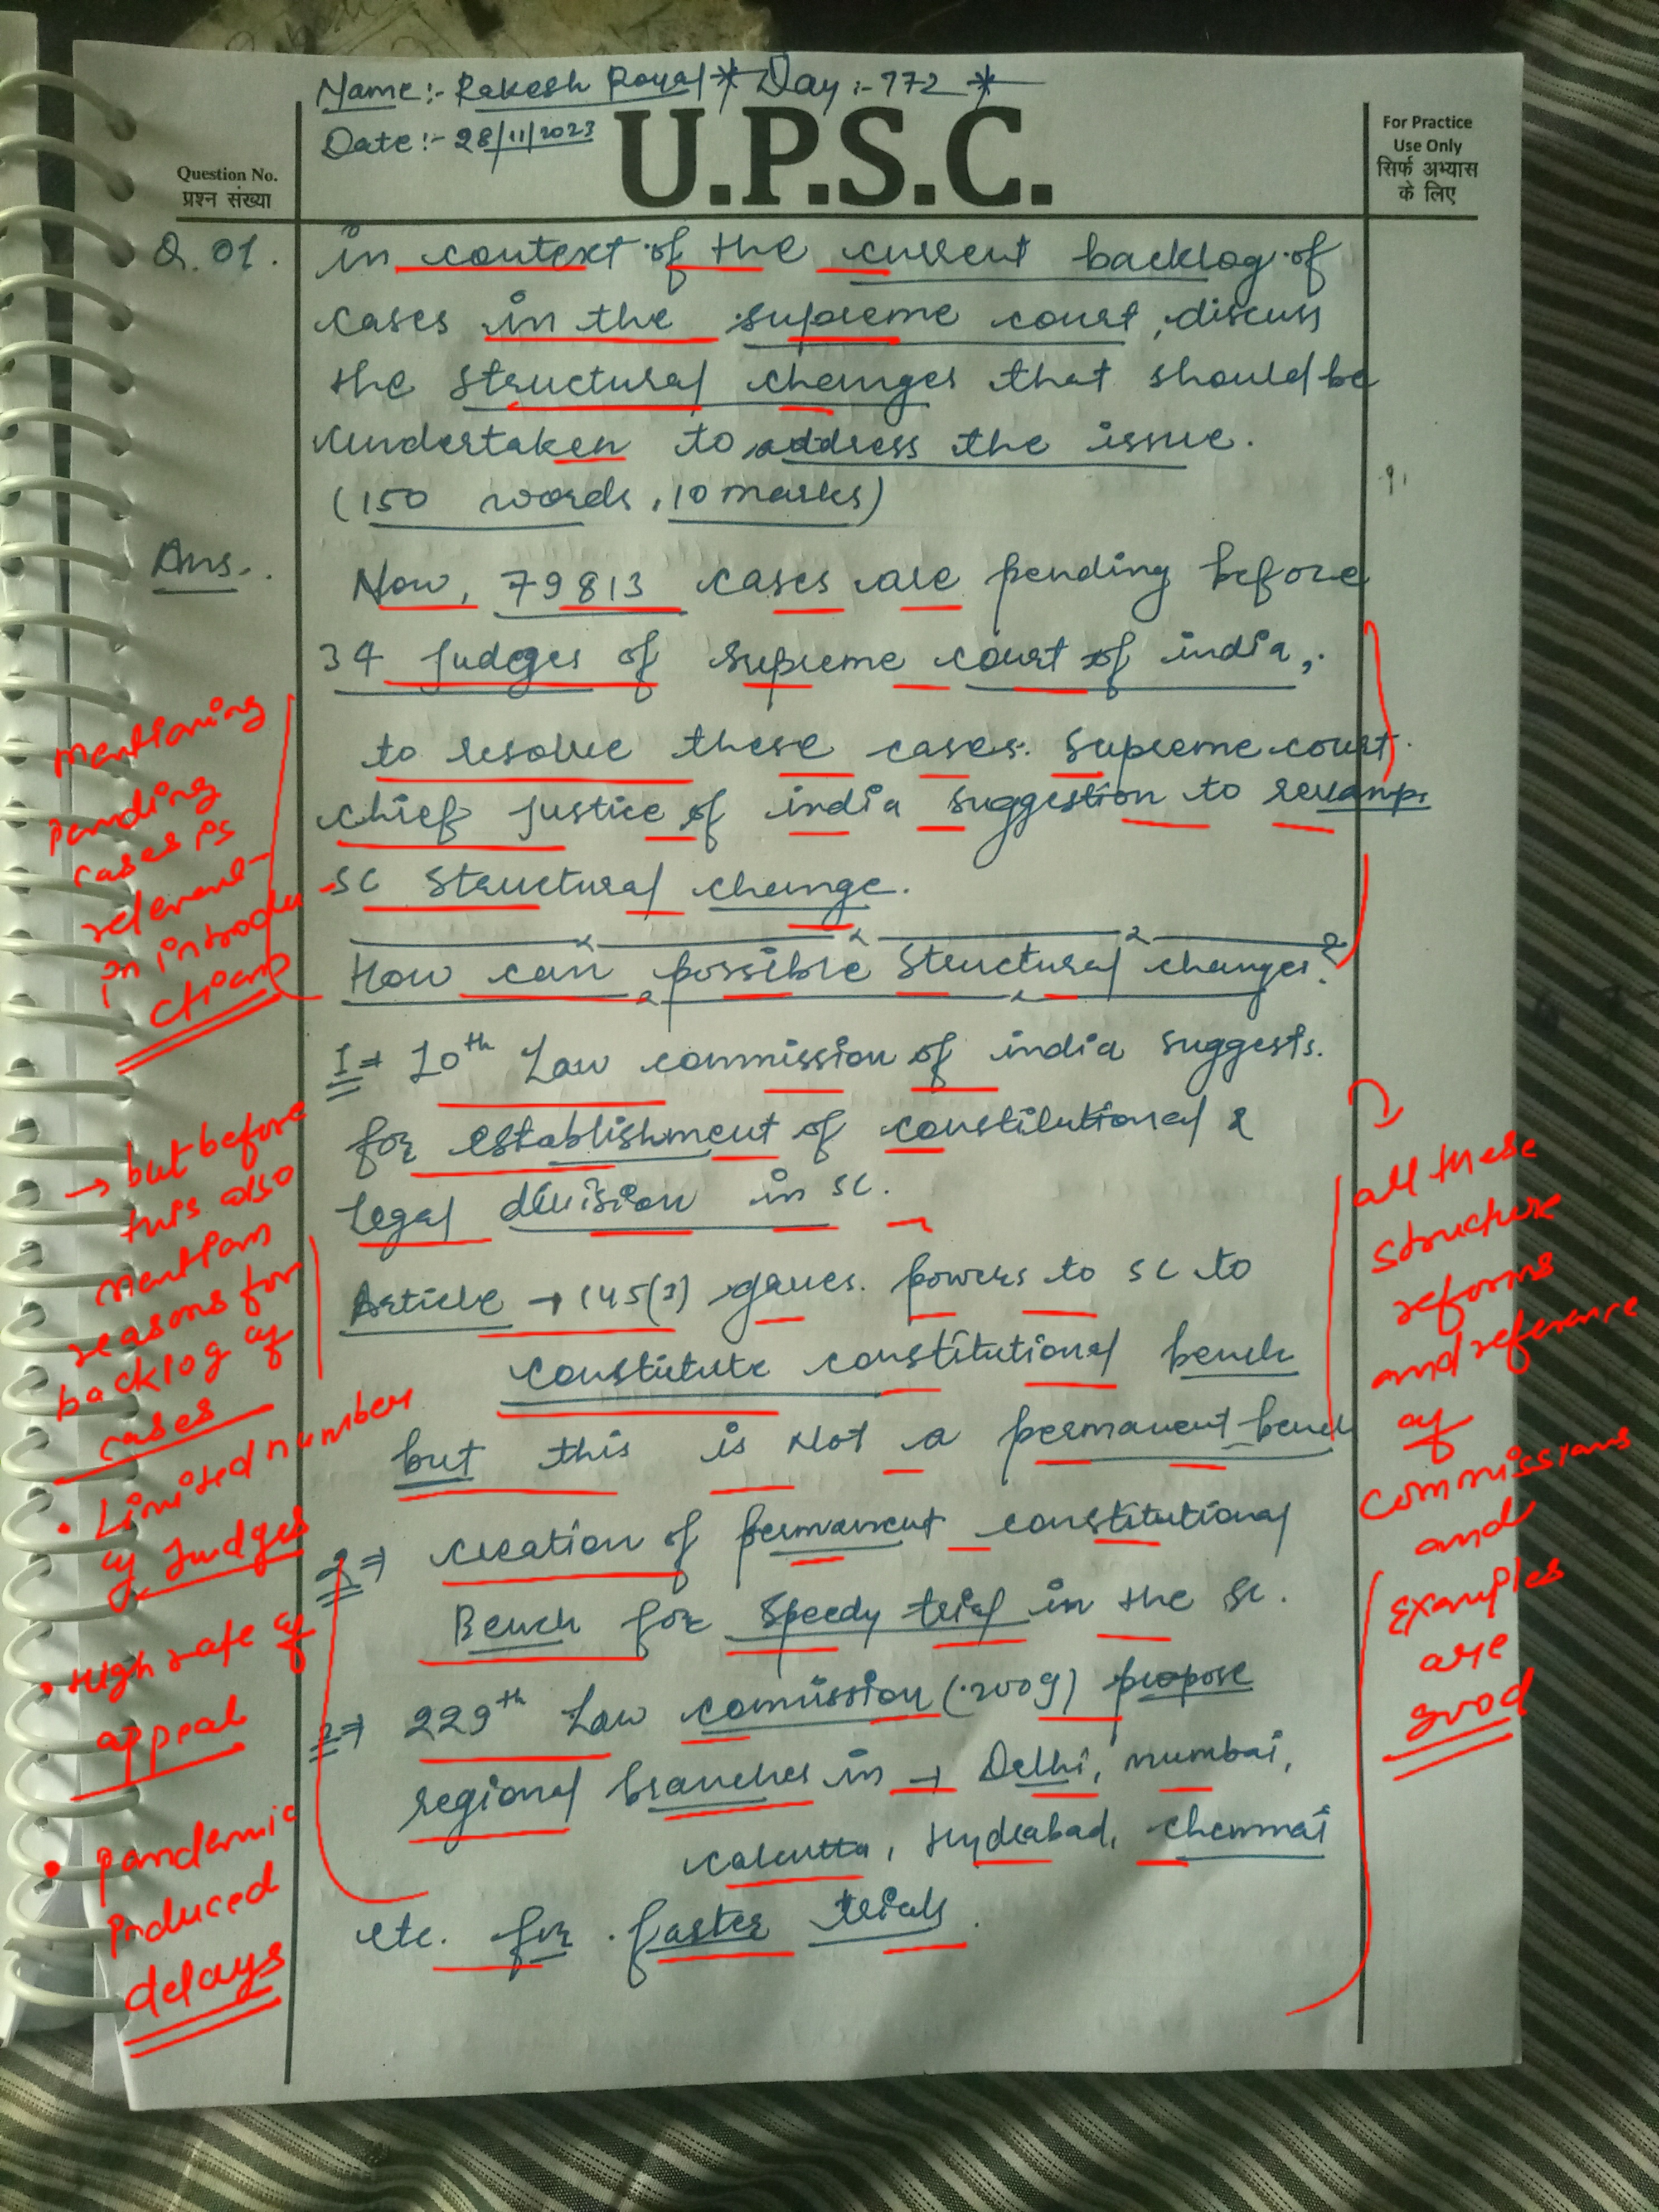 Name:- Rakesh Royal * Day:- 772 *
Date:- 28/11/2023
U.P.S.C.
Question No.
प्रश्न संख्या
For Practice
Use Only
सिर्फ अभ्यास
के लिए
Q.01.
in context of the current backlog of
cases in the supreme court, discuss
the structural changes that should be
undertaken to address the issue.
(150 words, 10 marks)
Ans.
Now, 79813 cases are pending before
34 judges of supreme court of india,
to resolve these cases. Supreme court
chief justice of india suggestion to revamp
SC structural change.
How can possible structural changes?
1⇒ 10th Law commission of india suggests.
for establishment of constitutional &
Legal division in SC.
Article → 145(3) gaves. powers to SC to
constitute constitutional bench
but this is Not a permanent bench
2⇒ creation of permanent constitutional
Bench for speedy trial in the SC.
3⇒ 229th Law comission (2009) propose
regional branches in → Delhi, mumbai,
calcutta, Hyderabad, chennai
etc. for faster trials.
mentioning
panding
cases is
relevent
in introdu
ction
→ but before
this also
mention
reasons for
backlog of
cases
• Limited number
of Judges
• High rate of
appeal
• pandemic
produced
delays
all these
structure
reforms
and reference
of
commissions
and
examples
are
good